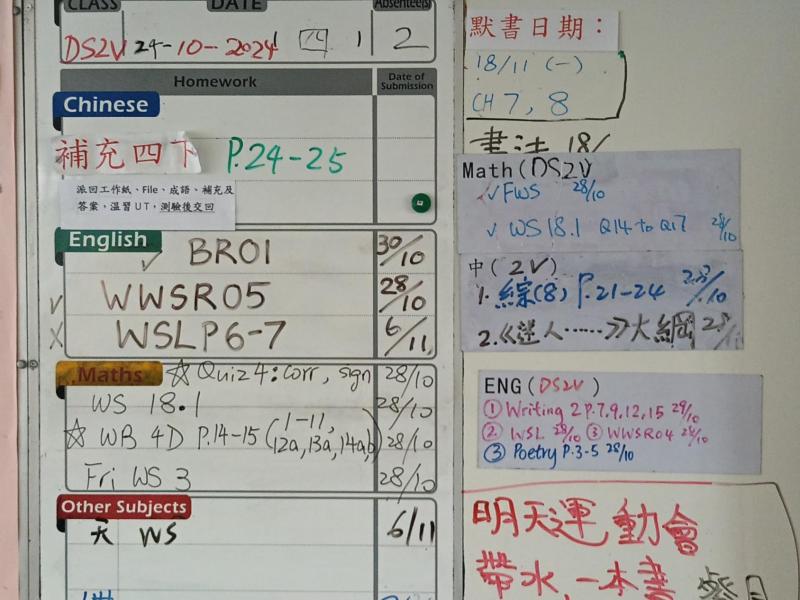 CLASS DATE Absentee(s)
DS2V 24-10-2024 1 2
Homework Date of Submission
Chinese
補充四下 P.24-25
派回工作紙、File、成語、補充及
答案，溫習UT，測驗後交回
English
✓ BR01 30/10
✓ WWSR05 28/10
X WSLP6-7 6/11
Maths ☆ Quiz 4: corr, sgn 28/10
WS 18.1 28/10
☆ WB 4D P.14-15 (1-11, 12a, 13a, 14ab) 28/10
Fri WS 3 28/10
Other Subjects
WS 6/11
默書日期：
18/11 (一)
CH 7, 8
書法 18/
Math(DS2V
✓ FWS 28/10
✓ WS 18.1 Q14 to Q17 28/10
中(2V)
1. 綜(8) P.21-24 /10
2.《迷人……》大綱
ENG(DS2V)
① Writing 2 P.7,9,12,15 29/10
② WSL 28/10 ③ WWSR04 /10
③ Poetry P.3-5 28/10
明天運動會
帶水,一本書